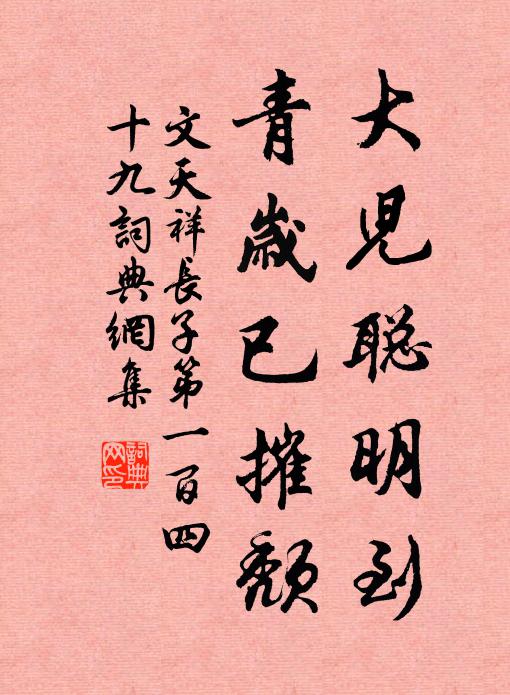 大兒聪明到
青歲已摧頹
文天祥長子第一百四
十九詞典網集
詞典
网印